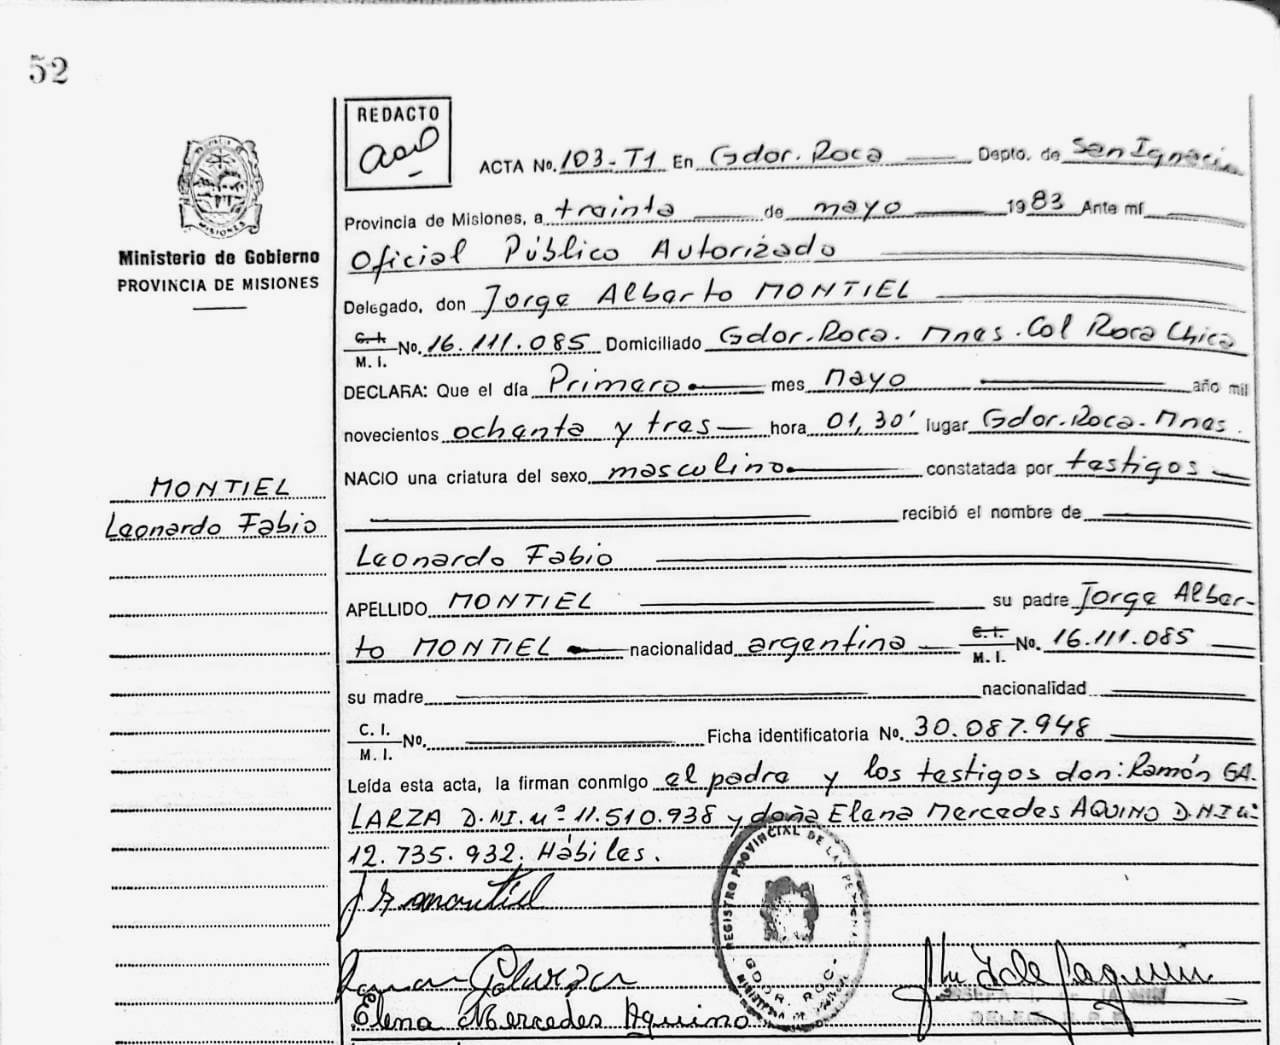 52
REDACTO
ACTA No. 103-T1 En Gdor. Roca Depto. de San Ignacio
Provincia de Misiones, a trainta de mayo 1983 Ante mí
Oficial Público Autorizado
Ministerio de Gobierno
PROVINCIA DE MISIONES
Delegado, don Jorge Alberto MONTIEL
C.I. M. I. No. 16.111.085 Domiciliado Gdor. Roca. Mnes. Col Roca Chica
DECLARA: Que el día Primero mes mayo año mil
novecientos ochenta y tres hora 01,30' lugar Gdor. Roca. Mnes.
NACIO una criatura del sexo masculino constatada por testigos
MONTIEL
Leonardo Fabio
recibió el nombre de
Leonardo Fabio
APELLIDO MONTIEL su padre Jorge Alber-
to MONTIEL nacionalidad argentina C.I. M. I. No. 16.111.085
su madre nacionalidad
C. I. M. I. No. Ficha identificatoria No. 30.087.948
Leída esta acta, la firman conmigo el padre y los testigos don: Ramón GA.
LARZA D.NI. nº 11.510.938 y doña Elena Mercedes AQUINO D.N.I nº
12.735.932. Hábiles.
REGISTRO PROVINCIAL DE LAS PERSONAS
GDOR. ROCA
Elena Mercedes Aquino